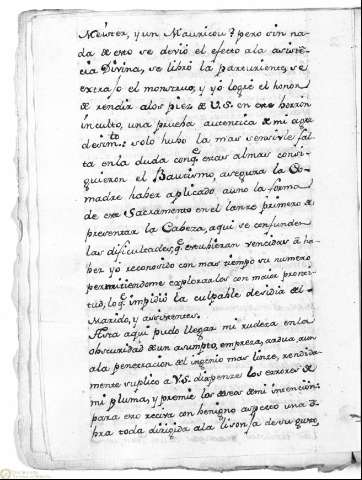 Meister, y un Mauricou? pero sin na-
da de eso se devió el efecto ala asistē-
cia Divina, se libró la parturiente, se
extrajo el monstruo, y yó logré el honor
de rendir alos piez de V.S. en ese borron
inculto, una prueba autentica de mi agra
desim.to solo hubo la mas sensivle fal
ta en la duda conq.e esas almas consi-
guieron el Bautismo, asegura la Co-
madre haber aplicado auno la forma
de ese Sacramento en el lanze primero de
presentar la Cabeza, aqui se confunden
las dificultades, q.e estubieran vencidas á ha-
ber yo reconosido con mas tiempo su numero
permitiendome explorarlos con maior pronti-
tud, loq.e impidió la culpable desidia del
Marido, y assistentes.
Asta aqui pudo llegar mi rudeza en la
obscuridad de un asumpto, empreza, ardua, aun
ala penetracion del ingenio mas linze, rendida-
mente suplico a V.S. dispenze los errores de
mi pluma, y premie los deseos de mi intencion,
para eso reciva con benigno aspecto una o-
bra toda dirigida ala lisonja de su gusto,